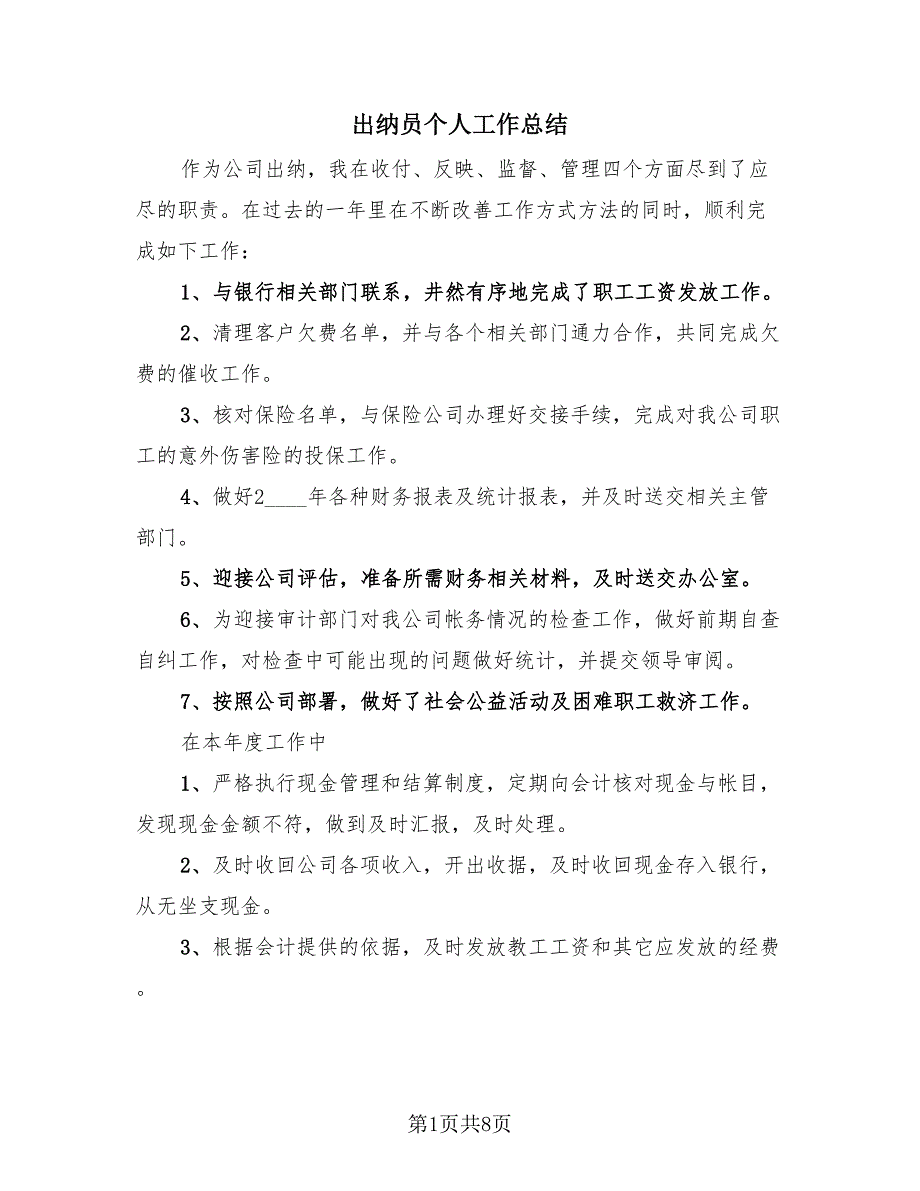 出纳员个人工作总结
作为公司出纳，我在收付、反映、监督、管理四个方面尽到了应
尽的职责。在过去的一年里在不断改善工作方式方法的同时，顺利完
成如下工作：
1、与银行相关部门联系，井然有序地完成了职工工资发放工作。
2、清理客户欠费名单，并与各个相关部门通力合作，共同完成欠
费的催收工作。
3、核对保险名单，与保险公司办理好交接手续，完成对我公司职
工的意外伤害险的投保工作。
4、做好2____年各种财务报表及统计报表，并及时送交相关主管
部门。
5、迎接公司评估，准备所需财务相关材料，及时送交办公室。
6、为迎接审计部门对我公司帐务情况的检查工作，做好前期自查
自纠工作，对检查中可能出现的问题做好统计，并提交领导审阅。
7、按照公司部署，做好了社会公益活动及困难职工救济工作。
在本年度工作中
1、严格执行现金管理和结算制度，定期向会计核对现金与帐目，
发现现金金额不符，做到及时汇报，及时处理。
2、及时收回公司各项收入，开出收据，及时收回现金存入银行，
从无坐支现金。
3、根据会计提供的依据，及时发放教工工资和其它应发放的经费
。
第1页共8页